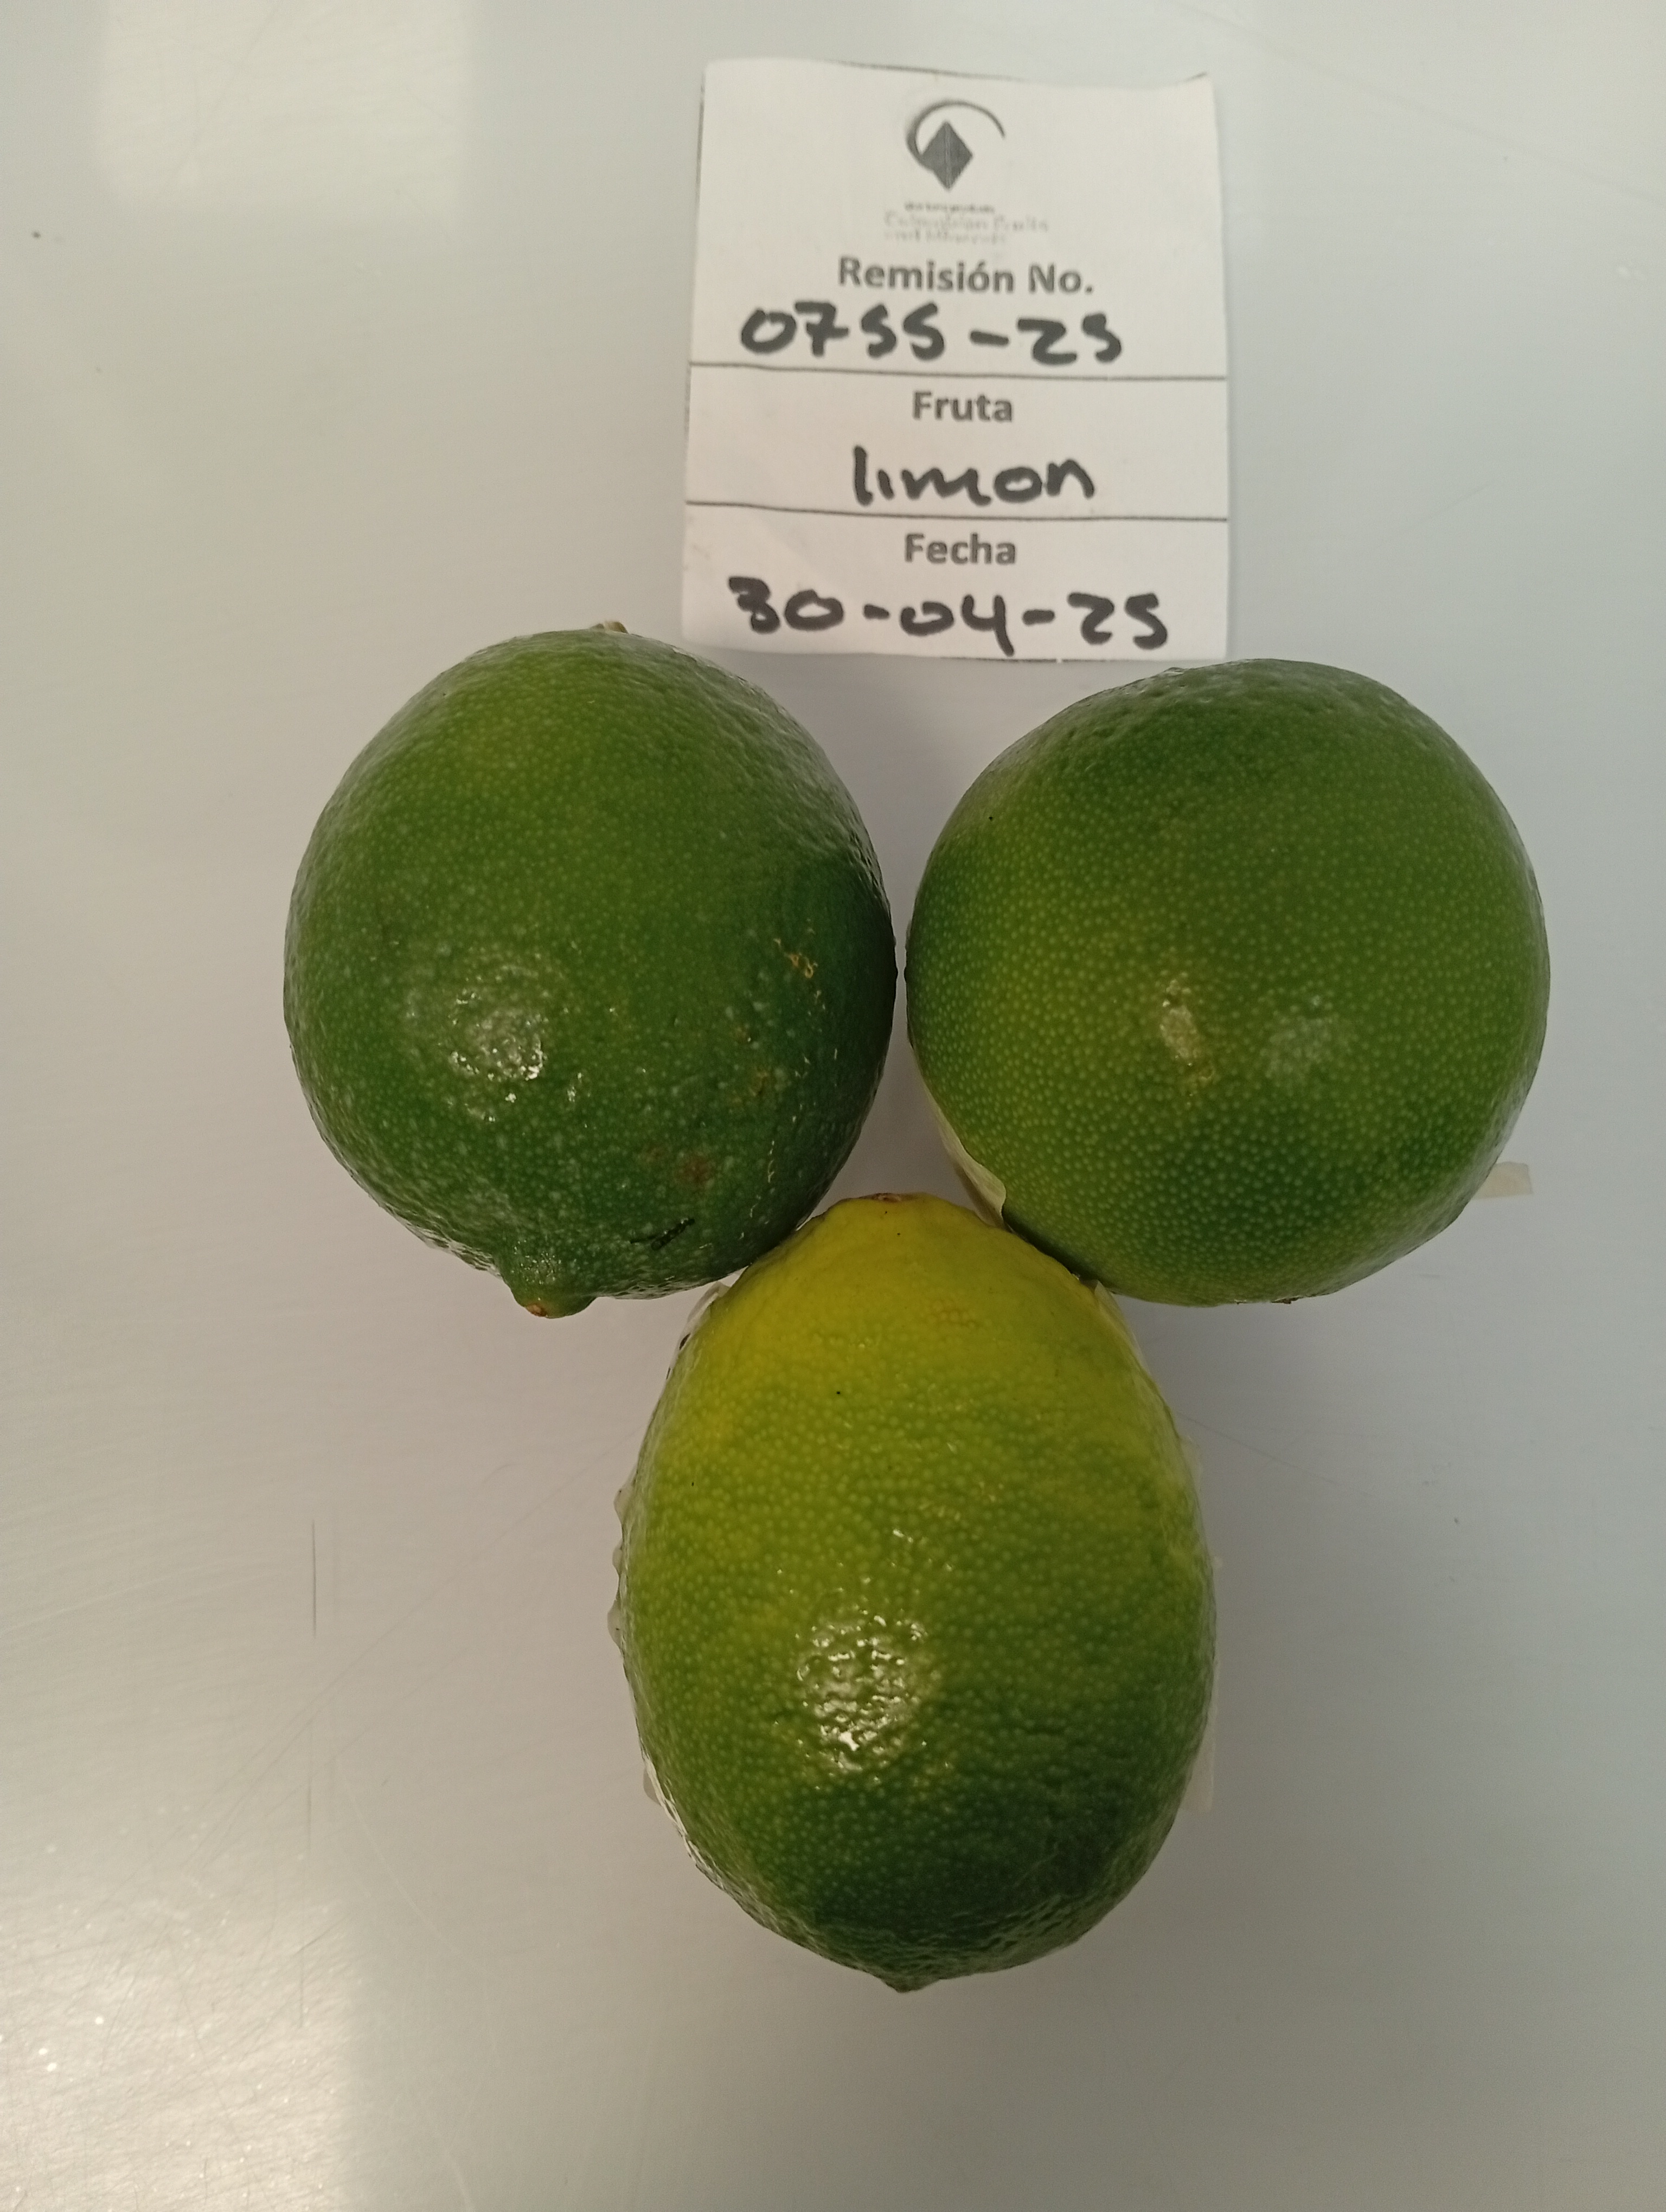 Colombian Fruits
Remisión No.
0755-25
Fruta
limon
Fecha
30-04-25